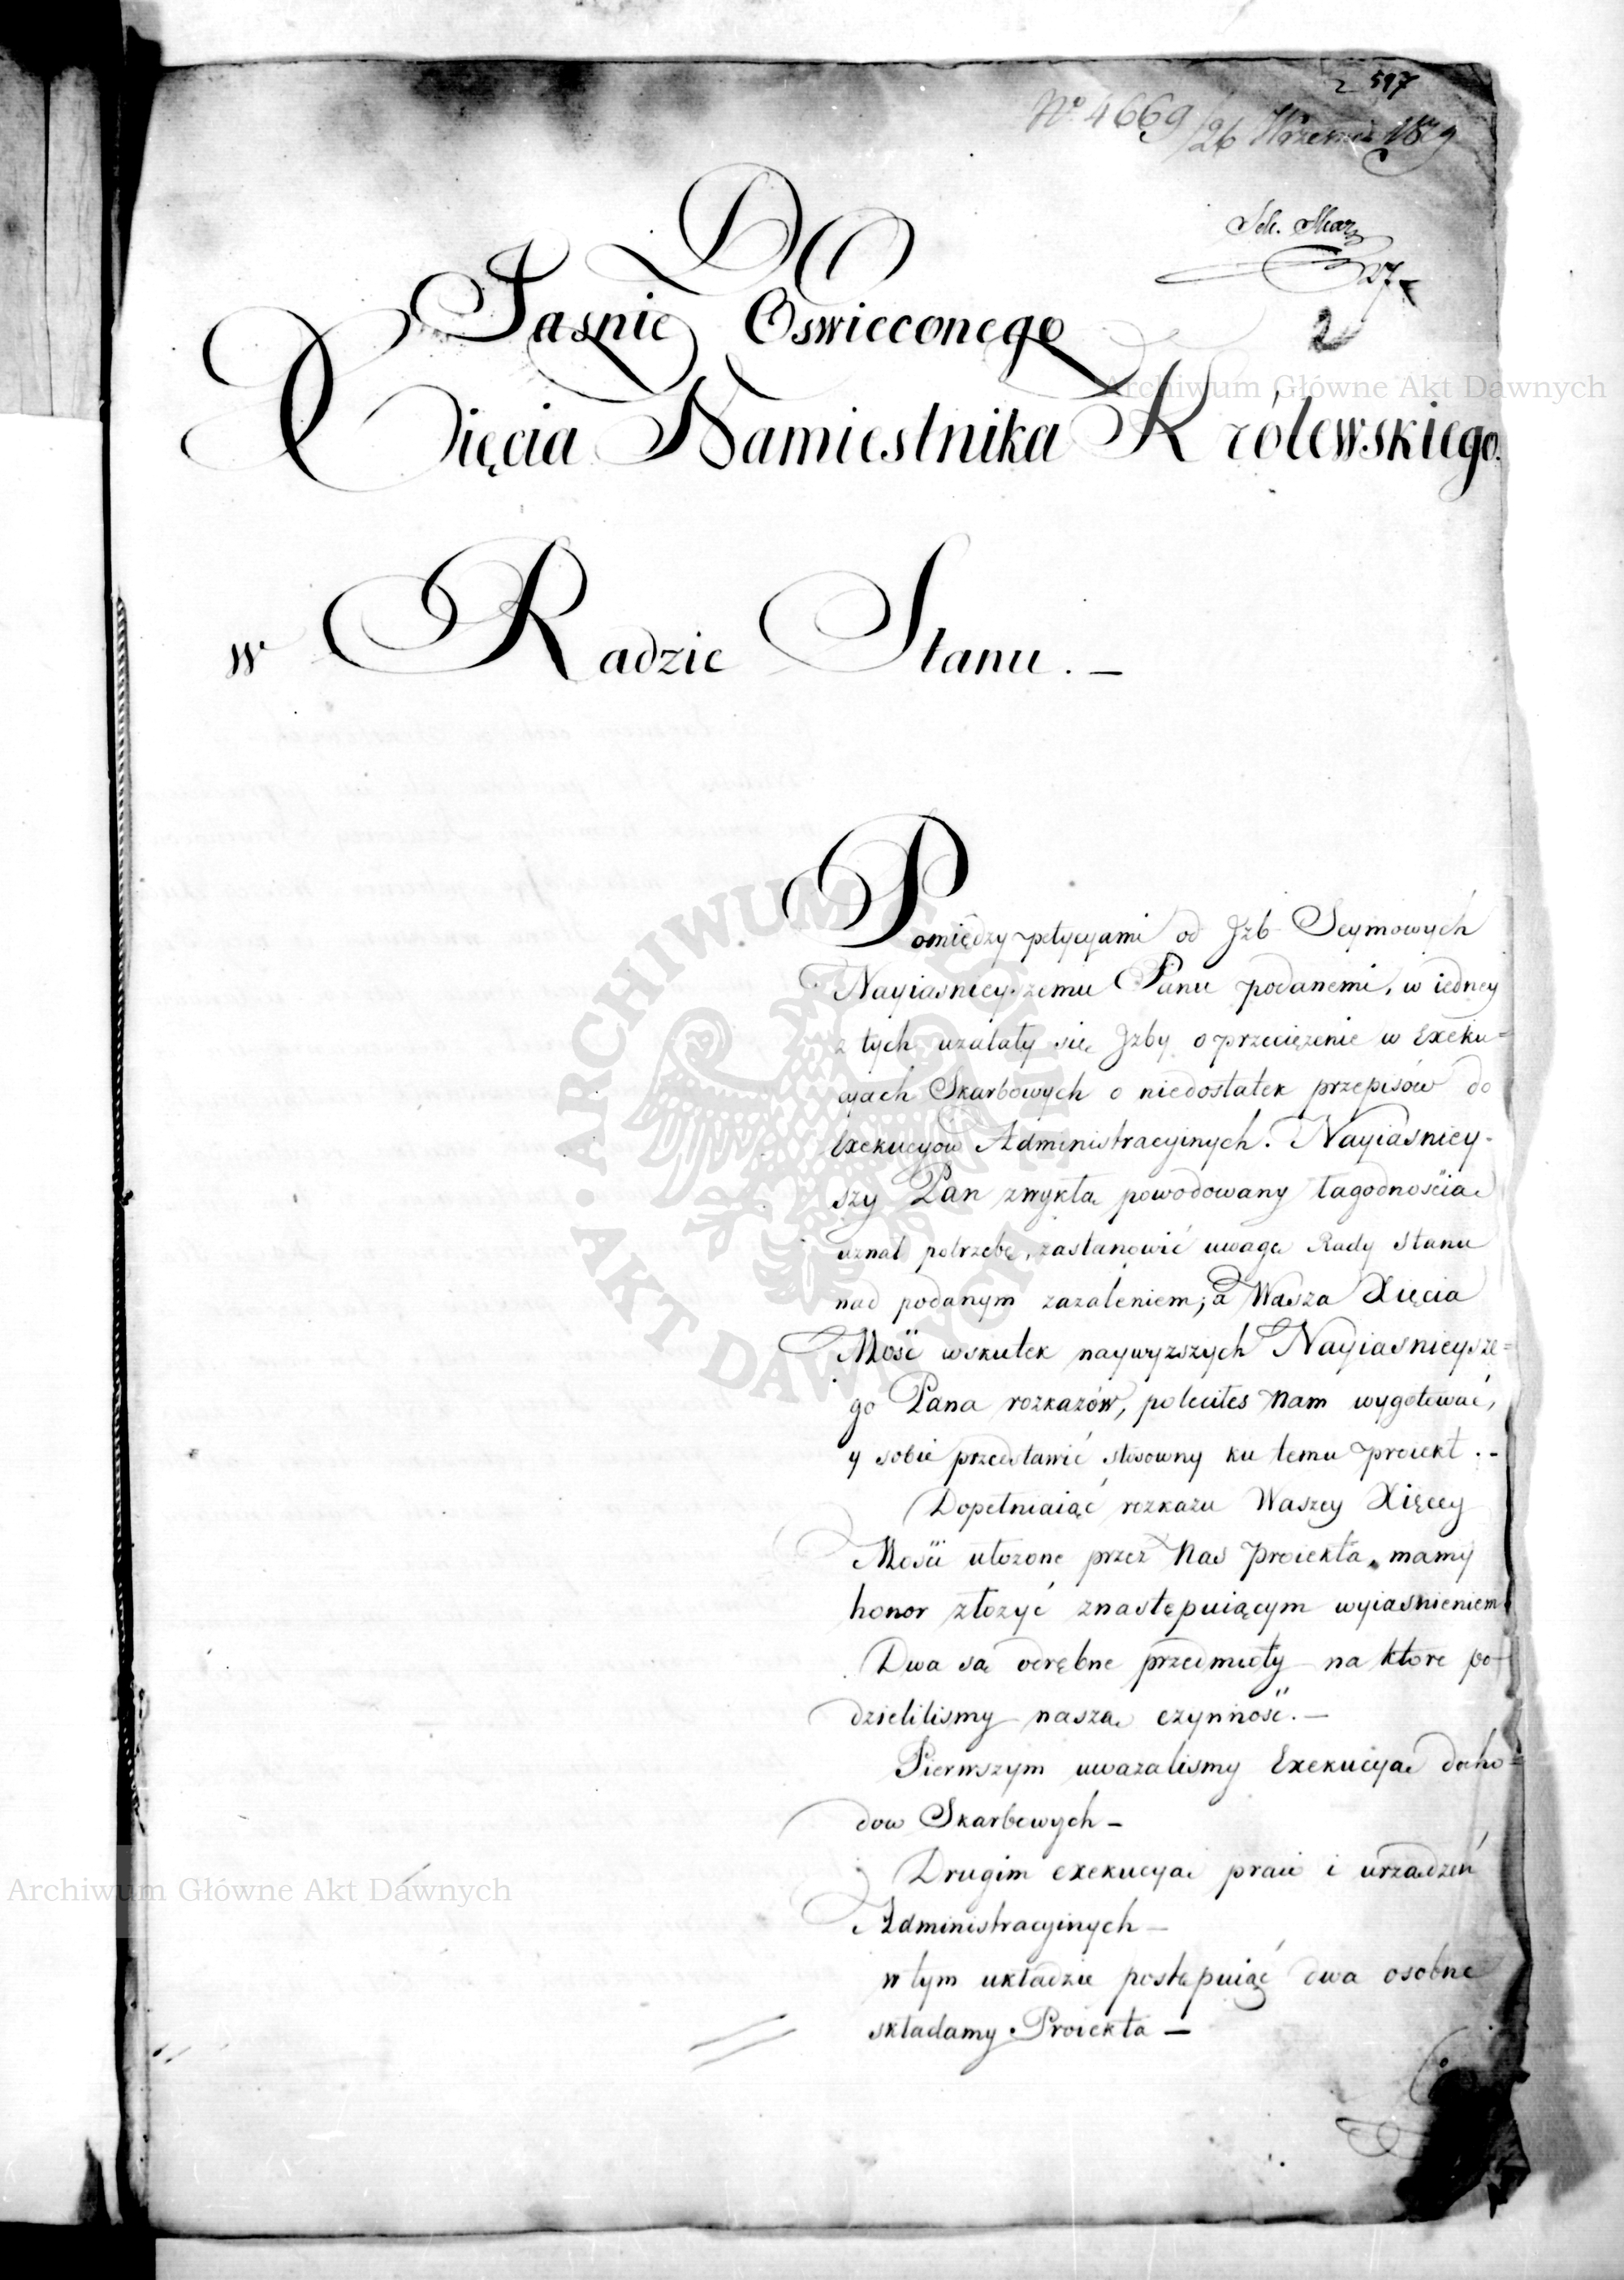 597
N° 4669/26 Wrzesnia 1819
Do
2
Jasnie Oswieconego
Xięcia Namiestnika Królewskiego.
w Radzie Stanu. —
Pomiędzy petycyami od Jzb Seymowych
Nayiasnieyszemu Panu podanemi, w iedney
z tych uzalały się Jzby o przeciężenie w Exeku=
cyach Skarbowych o niedostatek przepisów do
Exekucyow Administracyinych. Nayiasniey-
szy Pan zwykłą powodowany łagodnościa
uznał potrzebę, zastanowić uwagę Rady Stanu
nad podanym zazaleniem; a Wasza Xięcia
Mość wskutek naywyzszych Nayiasnieysze=
go Pana rozkazów, poleciłes Nam wygotować,
y sobie przedstawić stosowny ku temu proiekt. -
Dopełniaiąć rozkazu Waszey Xięcey
Mosci ułozone przez Nas Proiekta, mamy
honor złozyć znastępuiącym wyiasnieniem
Dwa są odrębne przedmioty na ktore po-
dzielilismy naszą czynność. —
Pierwszym uwazalismy Exekucyą docho=
dow Skarbowych —
Drugim exekucyą praw i urządzeń
Administracyinych —
w tym układzie postępuiąć dwa osobne
składamy Proiekta —
Archiwum Główne Akt Dawnych
Archiwum Główne Akt Dawnych
ARCHIWUM GŁÓWNE AKT DAWNYCH